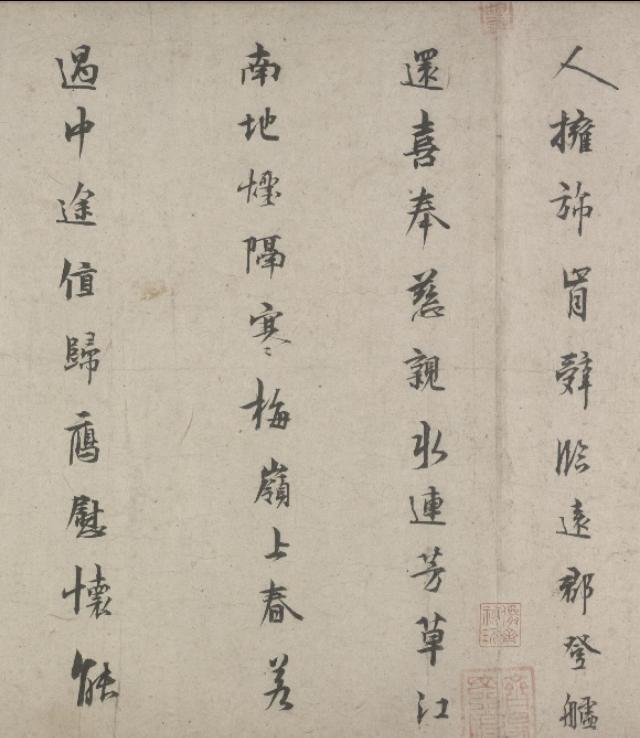 人擁旆肯辭臨遠郡登艫
還喜奉慈親水連芳草江
南地煙隔寒梅嶺上春若
過中途值歸鴈慰懷能